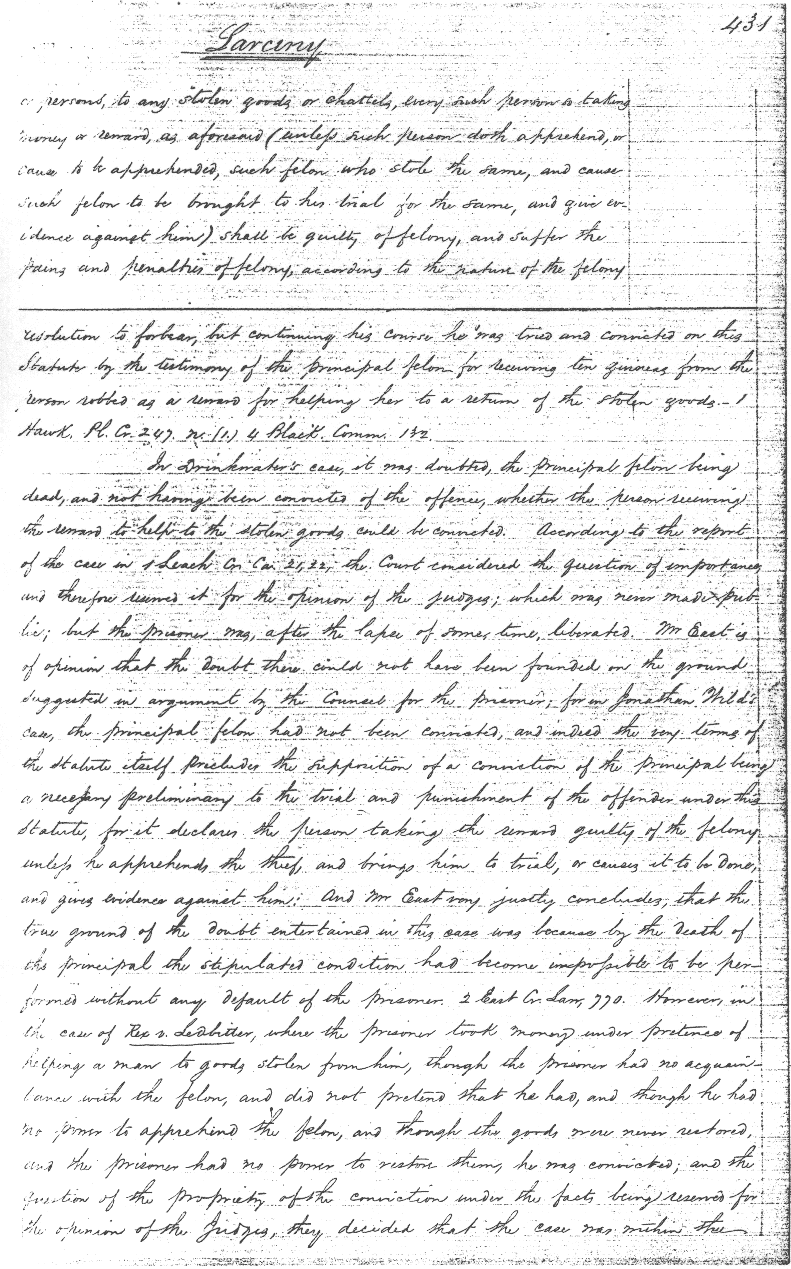 431
Larceny
or persons, to any stolen goods or chattels, every such person so taking
money or reward, as aforesaid (unless such person doth apprehend, or
cause to be apprehended, such felon who stole the same, and cause
such felon to be brought to his trial for the same, and give ev-
idence against him) shall be guilty of felony, and suffer the
pains and penalties of felony, according to the nature of the felony
resolution to forbear, but continuing his course he was tried and convicted on this
Statute by the testimony of the principal felon for receiving ten guineas from the
person robbed as a reward for helping her to a return of the stolen goods. – 1
Hawk. Pl. Cr. 247. n. (1.) 4 Black. Comm. 132.
In Drinkwater's case, it was doubted, the principal felon being
dead, and not having been convicted of the offence, whether the person receiving
the reward to help to the stolen goods could be convicted. According to the report
of the case in 1 Leach Cr. Ca. 21, 22, the Court considered the question of importance
and therefore reserved it for the opinion of the judges; which was never made pub-
lic; but the prisoner was, after the lapse of some time, liberated. Mr East is
of opinion that the doubt there could not have been founded on the ground
suggested in argument by the Counsel for the prisoner; for in Jonathan Wild's
case, the principal felon had not been convicted, and indeed the very terms of
the Statute itself precludes the supposition of a conviction of the principal being
a necessary preliminary to the trial and punishment of the offender under this
Statute, for it declares the person taking the reward guilty of the felony
unless he apprehends the thief, and brings him to trial, or causes it to be done,
and gives evidence against him: And Mr East very justly concludes, that the
true ground of the doubt entertained in this case was because by the death of
the principal the stipulated condition had become impossible to be per-
formed without any default of the prisoner. 2 East Cr. Law, 770. However, in
the case of Rex v. Ledbitter, where the prisoner took money under pretence of
helping a man to goods stolen from him, though the prisoner had no acquain-
tance with the felon, and did not pretend that he had, and though he had
no power to apprehend the felon, and though the goods were never restored,
and the prisoner had no power to restore them, he was convicted; and the
question of the propriety of the conviction under the facts being reserved for
the opinion of the Judges, they decided that the case was within the